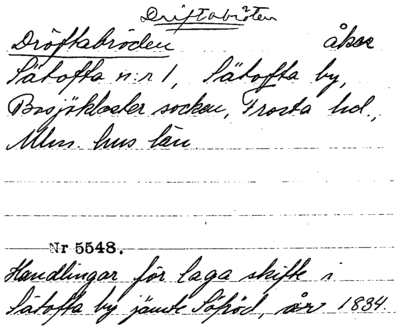 Driftabröten
Dröftabröden åker
Sätofta n:r 1, Sätofta by,
Bosjökloster socken, Frosta hd,
Mlm. hus län
Nr 5548.
Handlingar för laga skifte i
Sätofta by jämte Sjöröd, år 1834